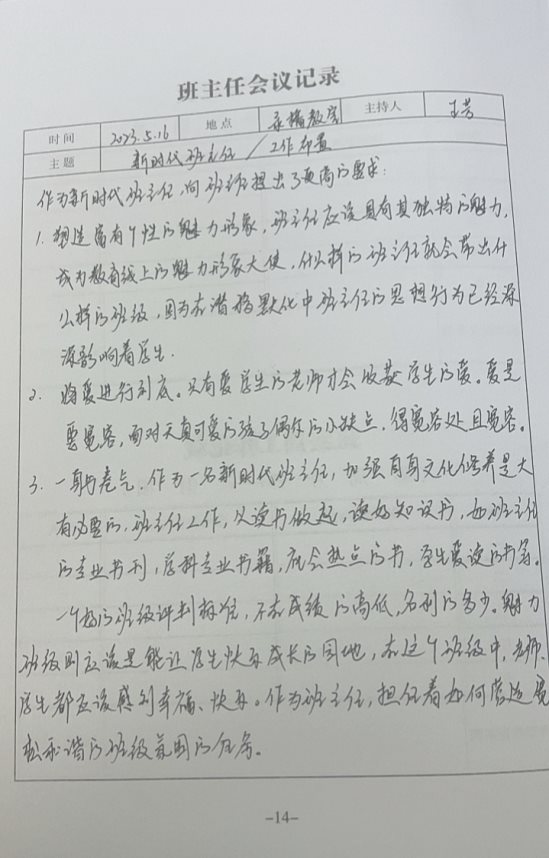 班主任会议记录
时间 2023.5.16 地点 录播教室 主持人 王芳
主题 新时代班主任工作布置
作为新时代班主任,向班主任提出了更高的要求:
1. 塑造富有个性的魅力形象,班主任应该具有其独特的魅力,
成为教育线上的魅力形象大使,什么样的班主任就会带出什
么样的班级,因为在潜移默化中班主任的思想行为已经深
深影响着学生.
2. 将爱进行到底。只有爱学生的老师才会收获学生的爱。爱是
要宽容,面对天真可爱的孩子偶尔的小缺点,得宽容处且宽容。
3. 一身书卷气.作为一名新时代班主任,加强自身文化修养是大
有必要的.班主任工作,从读书做起,读好知识书,如班主任
的专业书刊,学科专业书籍,社会热点的书,学生爱读的书等。
一个好的班级评判标准,不在成绩的高低,名利的多少。魅力
班级则应该是能让学生快乐成长的园地,在这个班级中,老师.
学生都应该感到幸福、快乐。作为班主任,担任着如何营造宽
松和谐的班级氛围的任务。
-14-